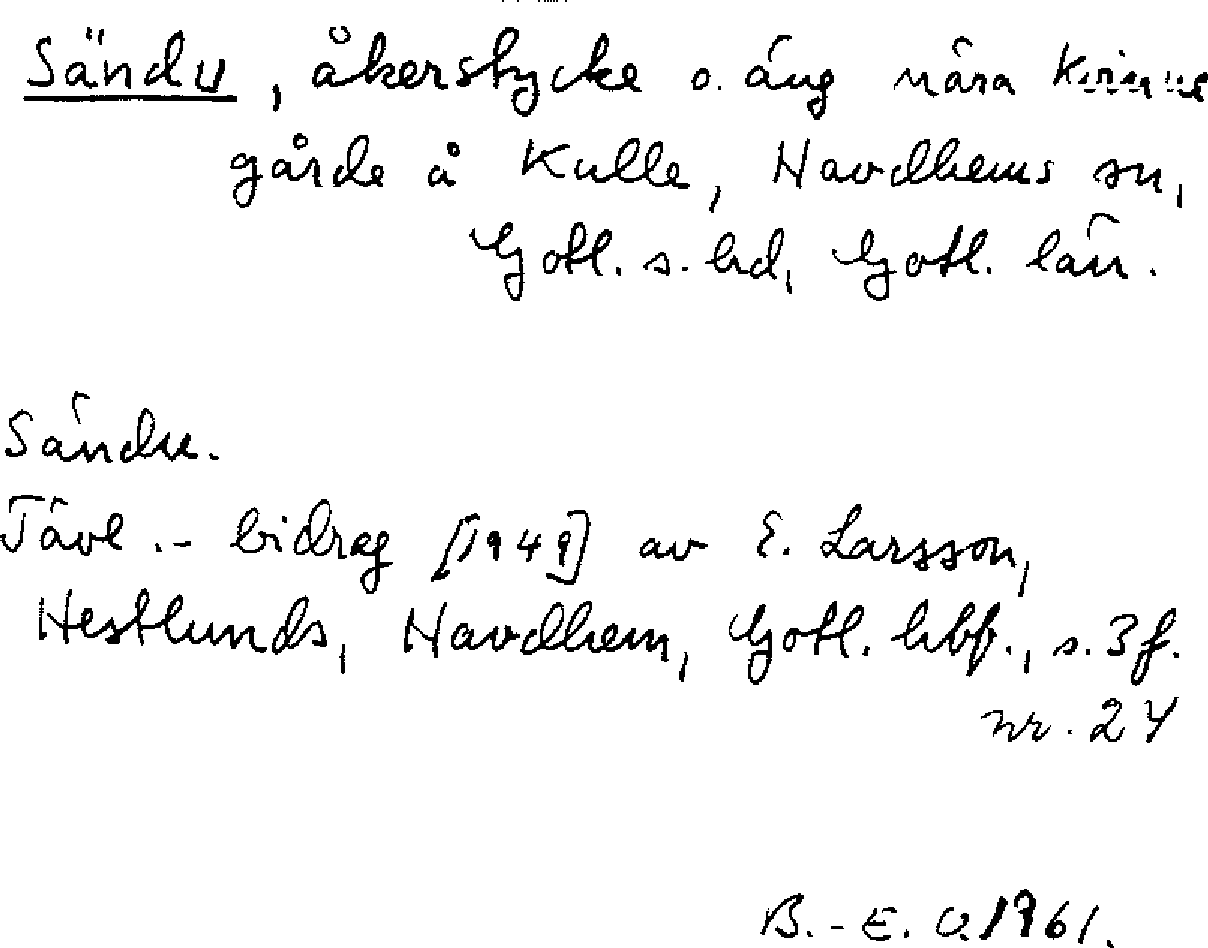 Sändu, åkerstycke o. äng nära
gårde å Kulle, Havdhems sn,
Gotl. s. hd, Gotl. län.
Sändu.
Tävl.-bidrag [1949] av E. Larsson,
Hestlunds, Havdhem, Gotl. hbf., s. 3 f.
nr. 24
B.-E. O. 1961.